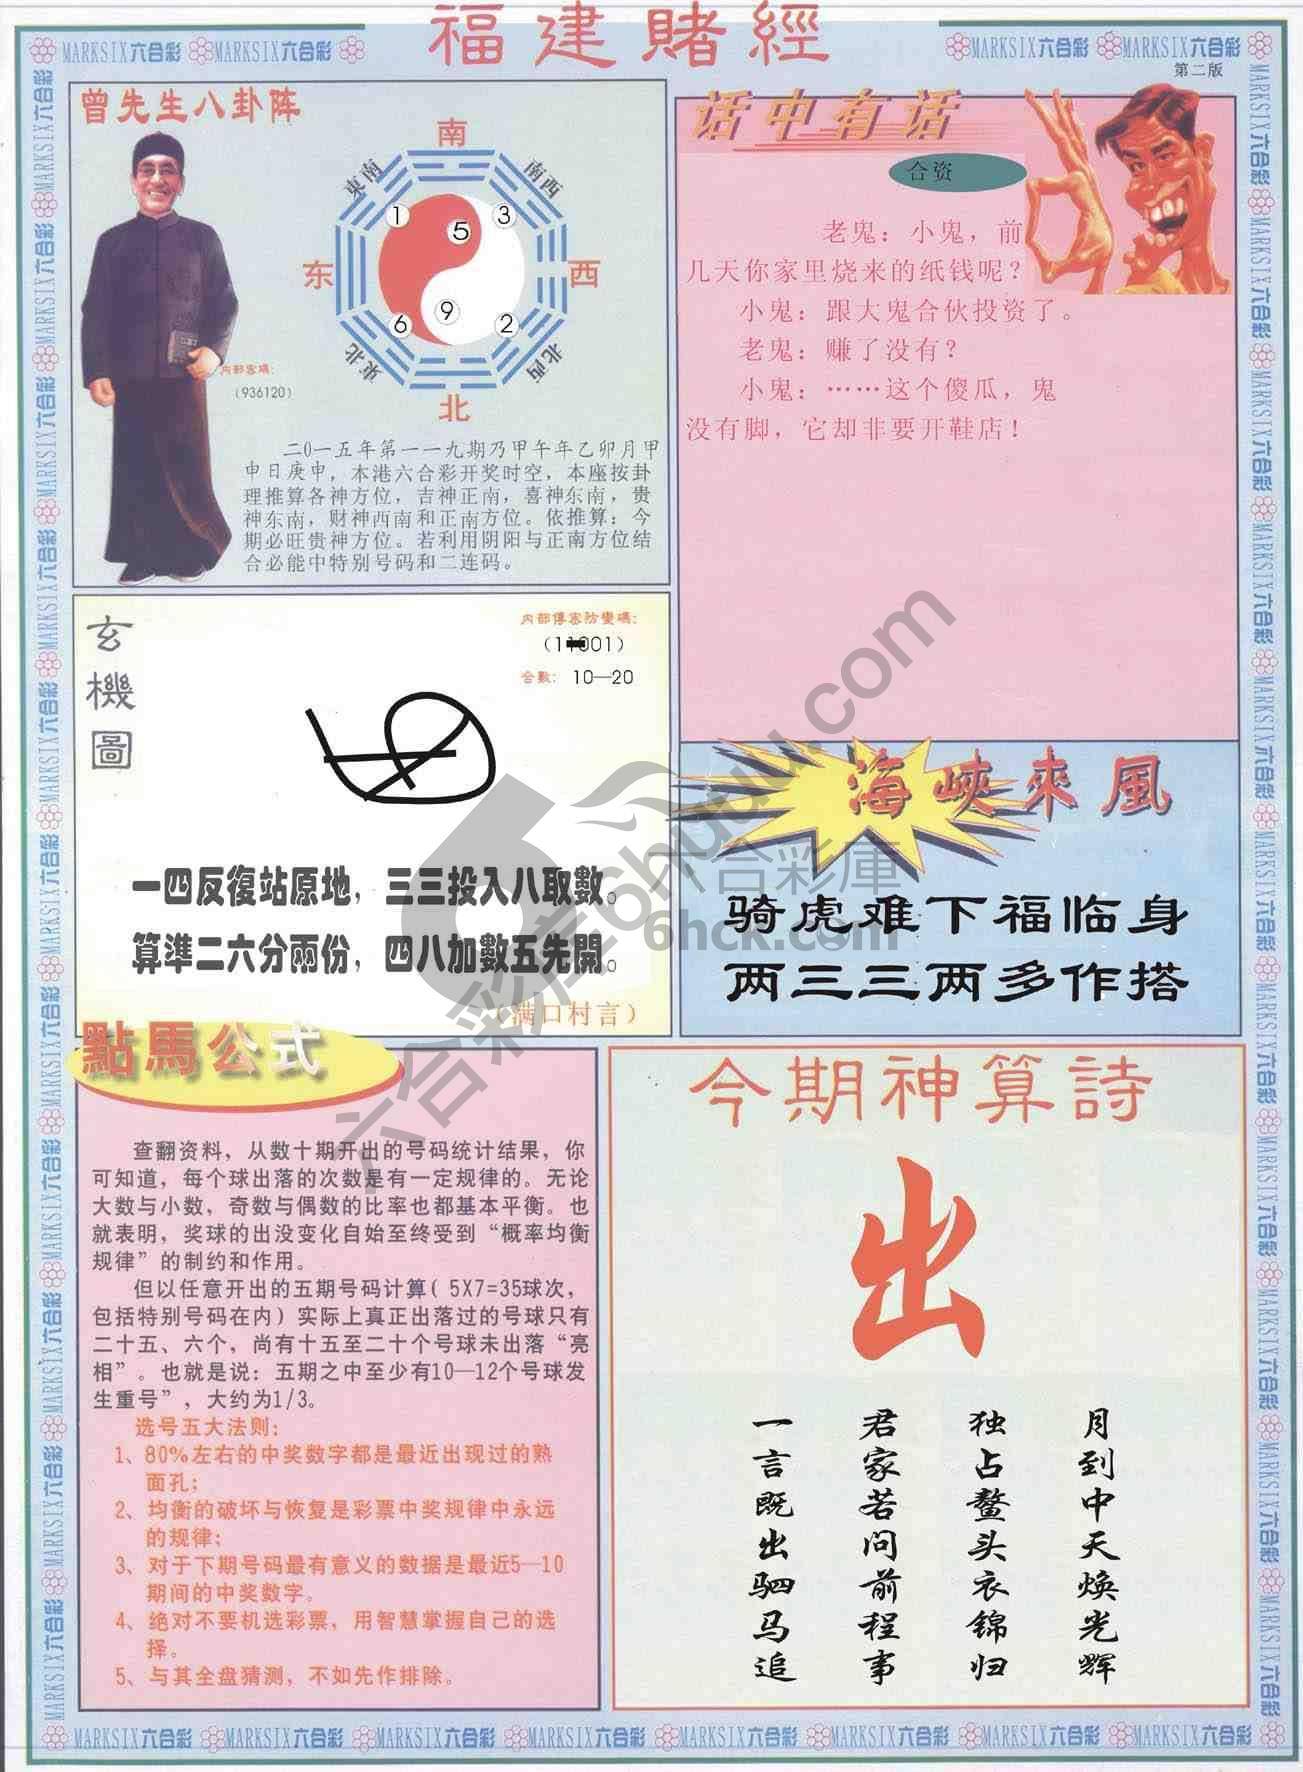 福建賭經
MARKSIX六合彩 MARKSIX六合彩
MARKSIX六合彩 MARKSIX六合彩
第二版
曾先生八卦阵
南
東南
南西
1
3
5
东
西
6
9
2
東北
北西
北
内部密碼：
（936120）
二0一五年第一一九期乃甲午年乙卯月甲
申日庚申，本港六合彩开奖时空，本座按卦
理推算各神方位，吉神正南，喜神东南，贵
神东南，财神西南和正南方位。依推算：今
期必旺贵神方位。若利用阴阳与正南方位结
合必能中特别号码和二连码。
话中有话
合资
老鬼：小鬼，前
几天你家里烧来的纸钱呢？
小鬼：跟大鬼合伙投资了。
老鬼：赚了没有？
小鬼：……这个傻瓜，鬼
没有脚，它却非要开鞋店！
玄機圖
内部傳密防變碼：
合數： 10—20
一四反復站原地，三三投入八取數。
算準二六分兩份，四八加數五先開。
（满口村言）
海峽來風
骑虎难下福临身
两三三两多作搭
點馬公式
查翻资料，从数十期开出的号码统计结果，你
可知道，每个球出落的次数是有一定规律的。无论
大数与小数，奇数与偶数的比率也都基本平衡。也
就表明，奖球的出没变化自始至终受到“概率均衡
规律”的制约和作用。
但以任意开出的五期号码计算( 5X7=35球次，
包括特别号码在内）实际上真正出落过的号球只有
二十五、六个，尚有十五至二十个号球未出落“亮
相”。也就是说：五期之中至少有10—12个号球发
生重号”，大约为1/3。
选号五大法则：
1、80%左右的中奖数字都是最近出现过的熟
面孔；
2、均衡的破坏与恢复是彩票中奖规律中永远
的规律；
3、对于下期号码最有意义的数据是最近5—10
期间的中奖数字。
4、绝对不要机选彩票，用智慧掌握自己的选
择。
5、与其全盘猜测，不如先作排除。
今期神算詩
出
月到中天焕光辉
独占鳌头衣锦归
君家若问前程事
一言既出驷马追
六合彩库6huuu.com
六合彩庫
6hck.com
MARKSIX六合彩 MARKSIX六合彩 MARKSIX六合彩 MARKSIX六合彩 MARKSIX六合彩 MARKSIX六合彩 MARKSIX六合彩 MARKSIX六合彩